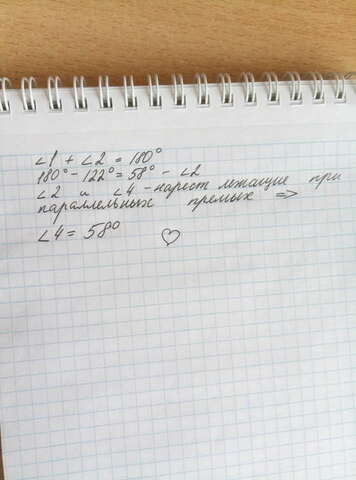 ∠1 + ∠2 = 180°
180° - 122° = 58° - ∠2
∠2 и ∠4 - нарест лежащие при
параллельных премых =>
∠4 = 58° ♡